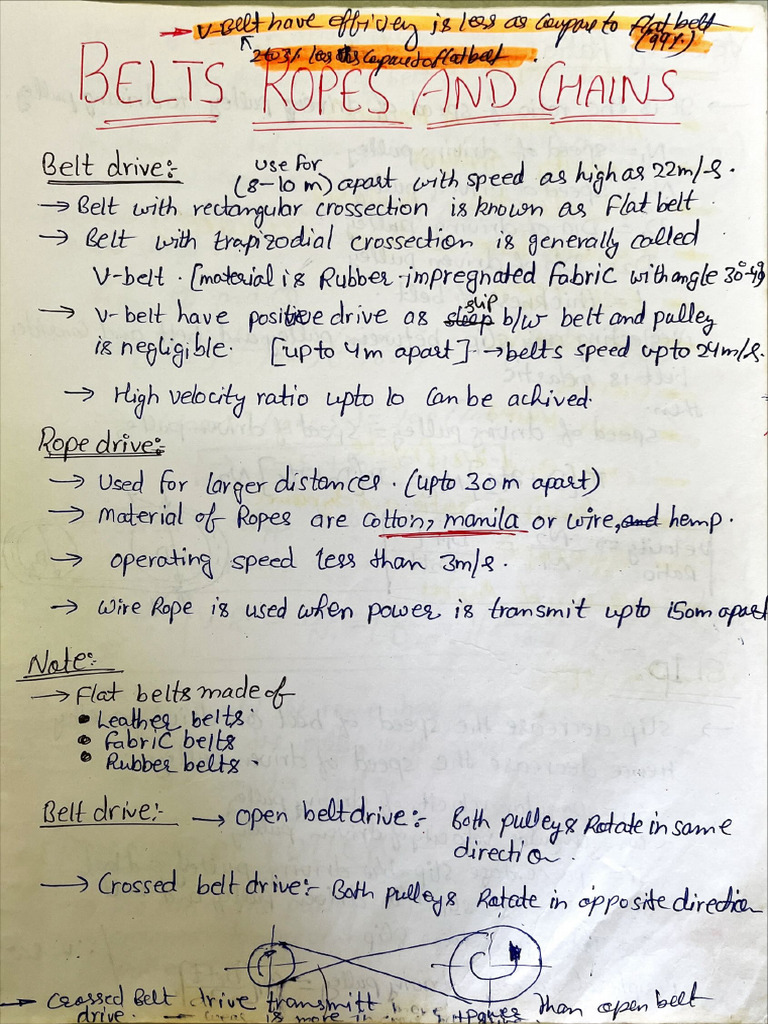 → V-Belt have efficiency is less as compare to flat belt
(99%)
2 to 3% less as compare to flat belt
BELTS ROPES AND CHAINS
Belt drive:- use for
(8-10 m) apart with speed as high as 22m/s.
→ Belt with rectangular crossection is known as flat belt
→ Belt with trapizodial crossection is generally called
V-belt. [material is Rubber-impregnated fabric with angle 30°-40°
→ V-belt have positive drive as slip b/w belt and pulley
is negligible. [upto 4m apart] → belts speed upto 24m/s.
→ High velocity ratio upto 10 can be achived.
Rope drive:-
→ Used for larger distances. (upto 30m apart)
→ Material of Ropes are cotton, manila or wire, hemp.
→ operating speed less than 3m/s.
→ Wire Rope is used when power is transmit upto 150m apart
Note:-
→ Flat belts made of
• Leather belts.
• fabric belts
• Rubber belts.
Belt drive:- → open belt drive:- Both pulleys Rotate in same
direction.
→ Crossed belt drive:- Both pulleys Rotate in opposite direction
→ Crossed Belt drive transmitt than open belt
drive. is more in